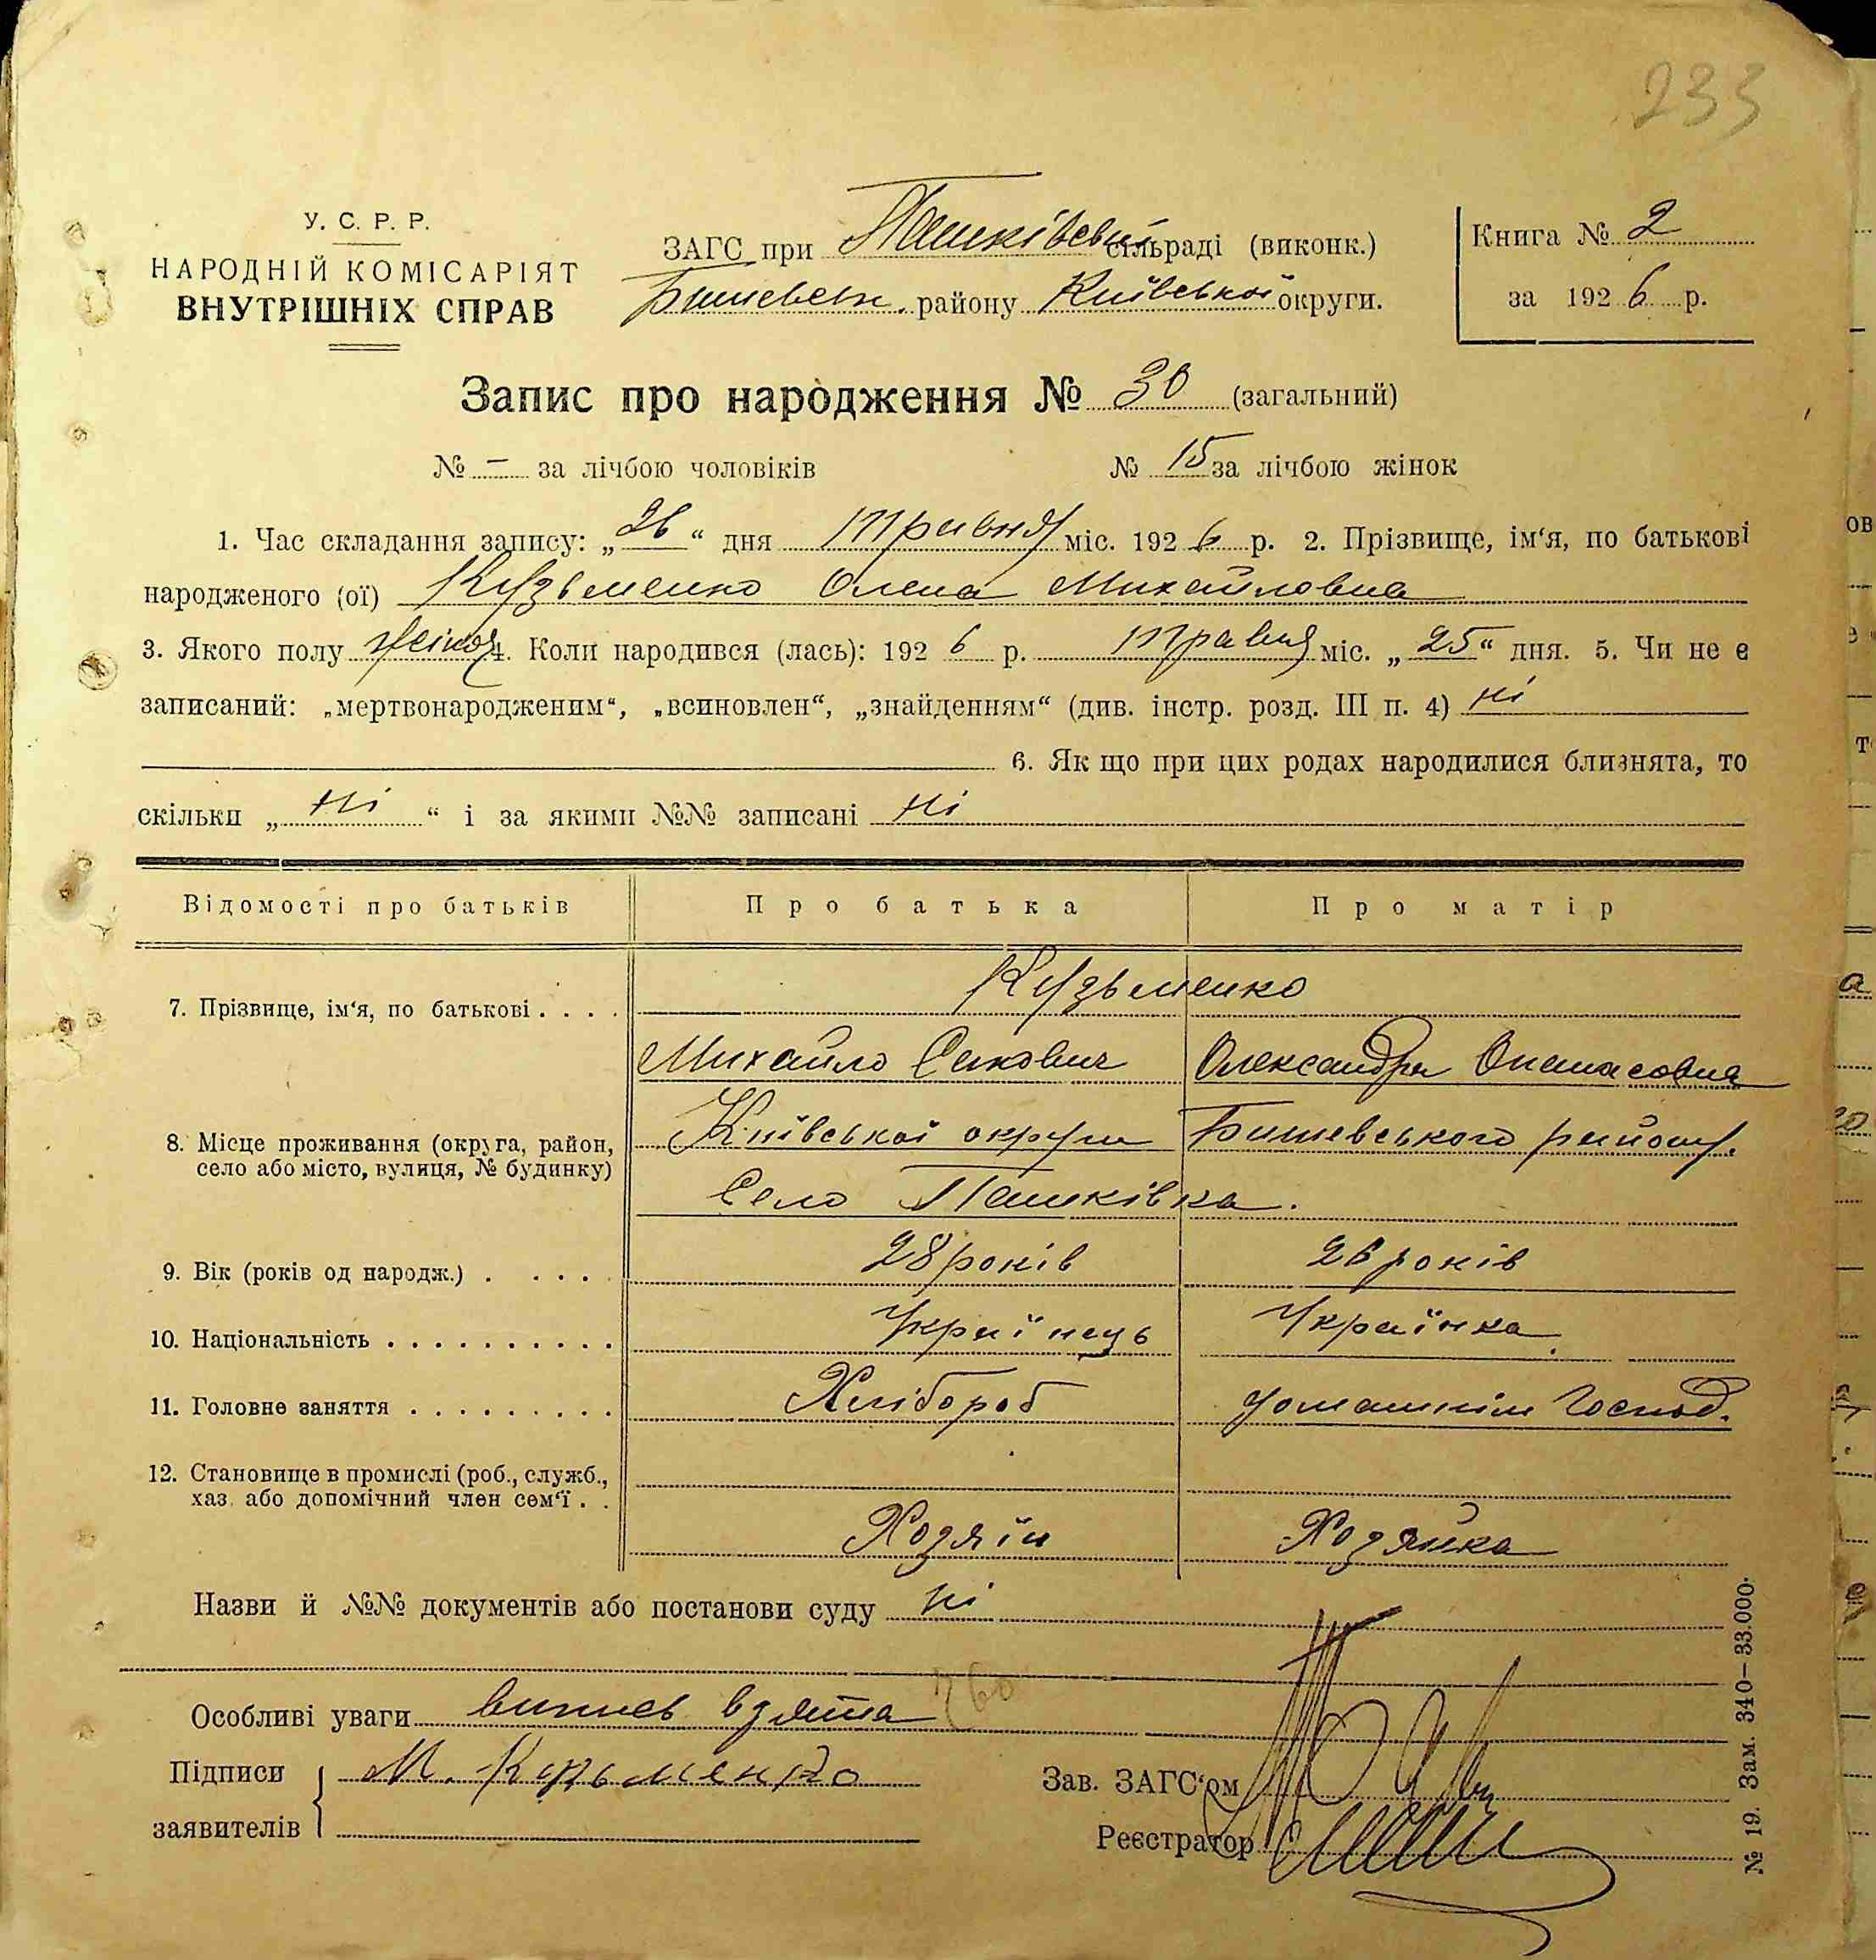 233
У. С. Р. Р.
НАРОДНІЙ КОМІСАРІЯТ
ВНУТРІШНІХ СПРАВ
ЗАГС при Пашківській сільраді (виконк.)
Бишевськ. району Київської округи.
Книга № 2
за 1926 р.
Запис про народження № 30 (загальний)
№ — за лічбою чоловіків № 15 за лічбою жінок
1. Час складання запису: „26“ дня травня міс. 1926 р. 2. Прізвище, ім‘я, по батькові
народженого (ої) Кузьменко Олена Михайловна
3. Якого полу жіноч 4. Коли народився (лась): 1926 р. травня міс. „25“ дня. 5. Чи не є
записаний: „мертвонародженим“, „всиновлен“, „знайденням“ (див. інстр. розд. III п. 4) ні
6. Як що при цих родах народилися близнята, то
скільки „ні“ і за якими №№ записані ні
Відомості про батьків Про батька Про матір
Кузьменко
7. Прізвище, ім‘я, по батькові . . . .
Михайло Сакович Олександра Опанасовна
8. Місце проживання (округа, район, Київської округи Бишевського району.
село або місто, вулиця, № будинку)
Село Пашківка.
9. Вік (років од народж.) . . . . . 28 років 26 років
10. Національність . . . . . . . . . . Українець Українка
11. Головне заняття . . . . . . . . . Хлібороб домашнім Господ.
12. Становище в промислі (роб., служб.,
хаз. або допомічний член сем‘ї . .
Хозяїн Хозяйка
Назви й №№ документів або постанови суду ні
Особливі уваги випись взята
Підписи М. Кузьменко
заявителів
Зав. ЗАГС‘ом
Реєстратор
№ 19. Зам. 340—33.000.